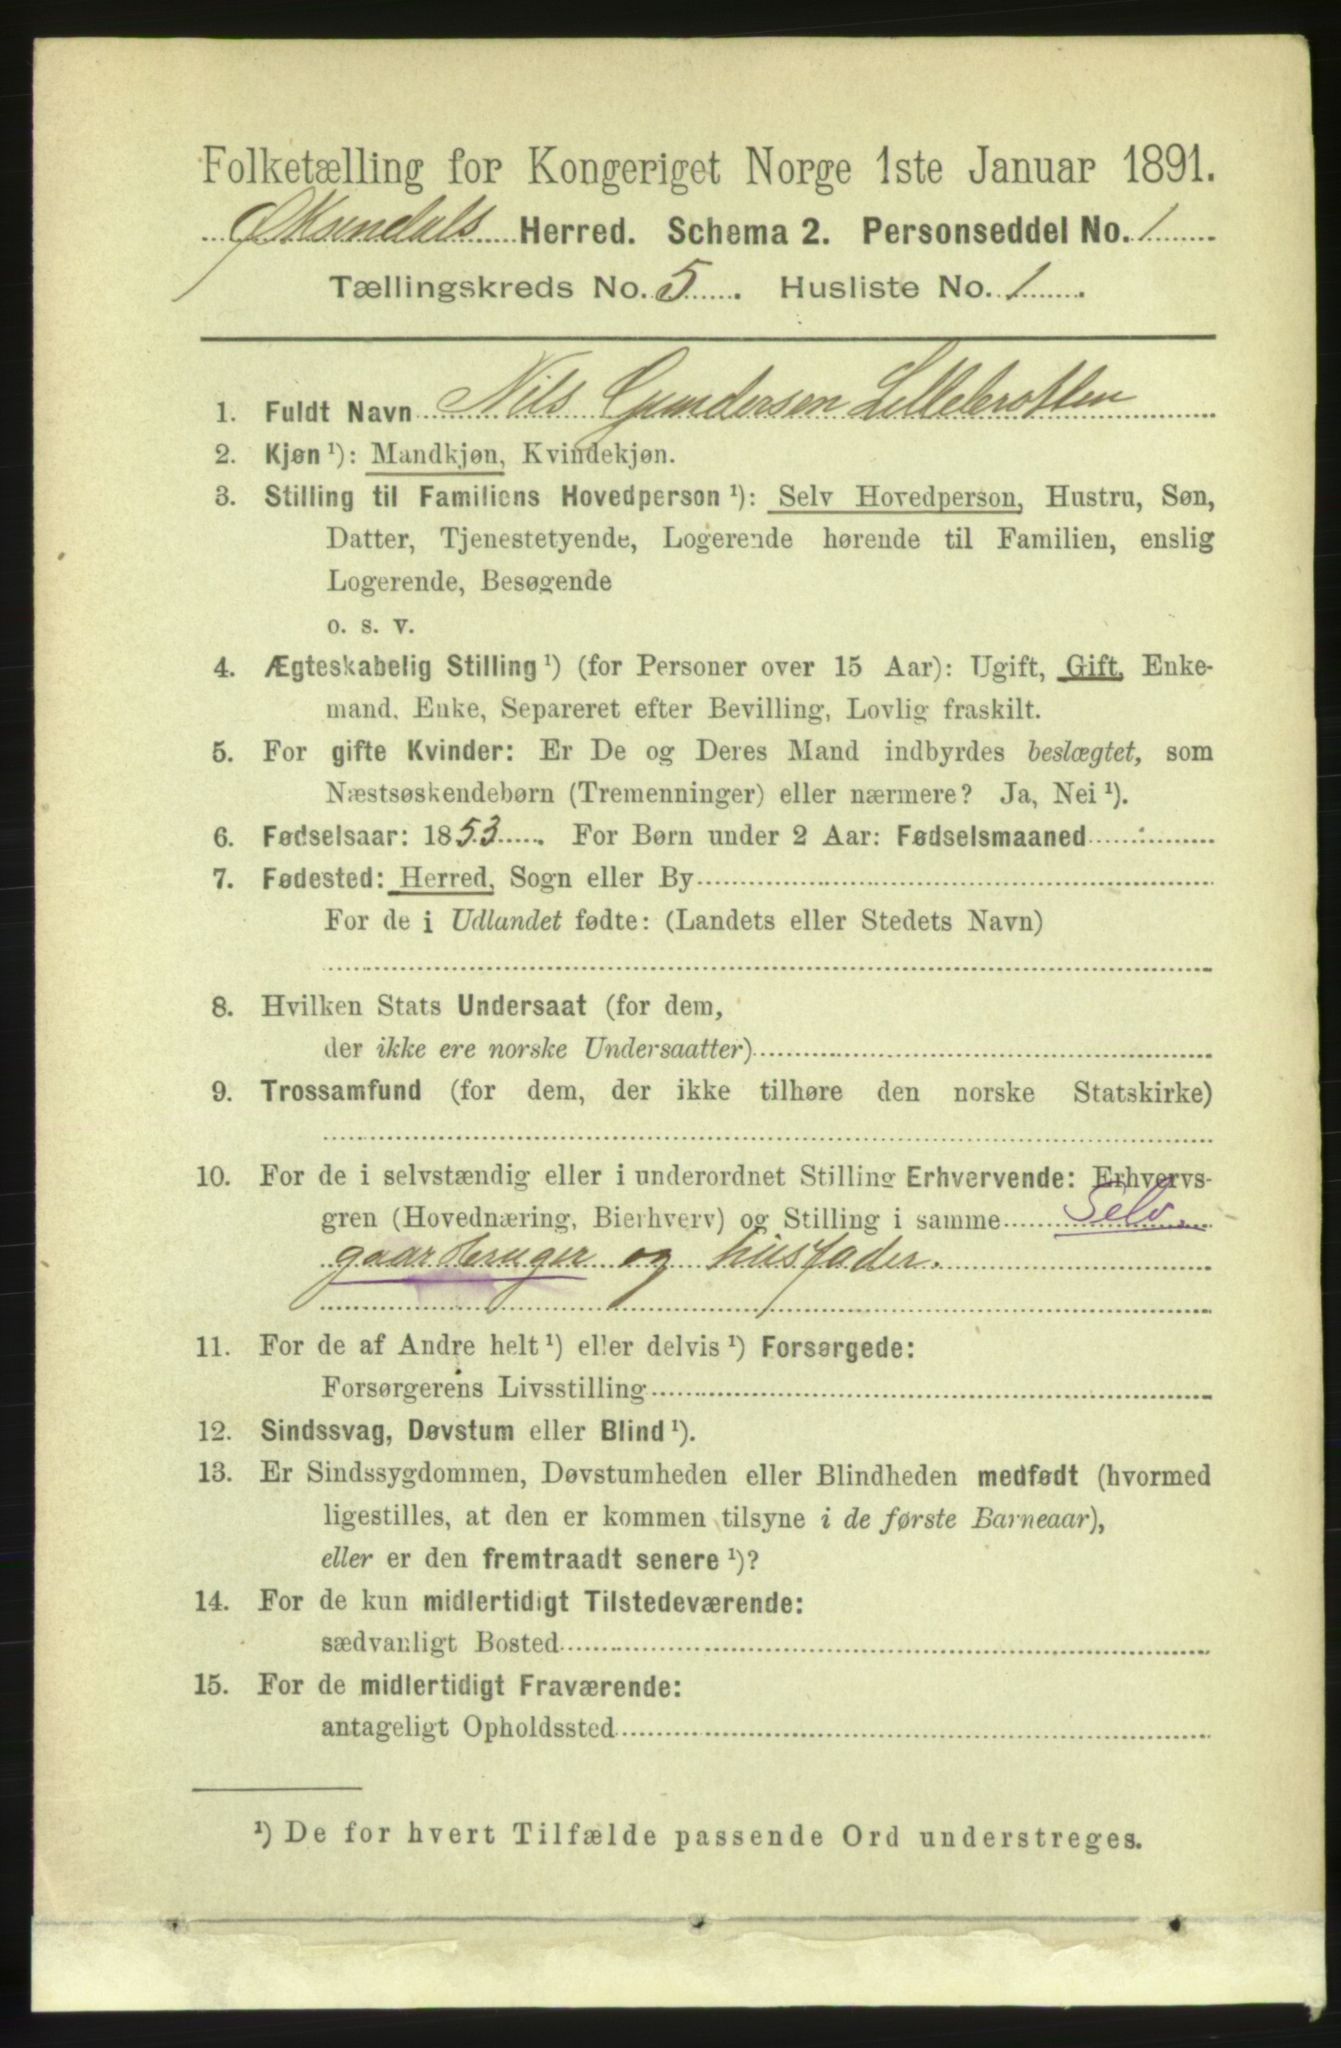 Folketælling for Kongeriget Norge 1ste Januar 1891.
Øksendals Herred. Schema 2. Personseddel No. 1
Tællingskreds No. 5. Husliste No. 1.
1. Fuldt Navn Nils Gundersen Lillebrotten
2. Kjøn ¹): Mandkjøn, Kvindekjøn.
3. Stilling til Familiens Hovedperson ¹): Selv Hovedperson, Hustru, Søn,
Datter, Tjenestetyende, Logerende hørende til Familien, enslig
Logerende, Besøgende
o. s. v.
4. Ægteskabelig Stilling ¹) (for Personer over 15 Aar): Ugift, Gift, Enke-
mand, Enke, Separeret efter Bevilling, Lovlig fraskilt.
5. For gifte Kvinder: Er De og Deres Mand indbyrdes beslægtet, som
Næstsøskendebørn (Tremenninger) eller nærmere? Ja, Nei ¹).
6. Fødselsaar: 1853. For Børn under 2 Aar: Fødselsmaaned
7. Fødested: Herred, Sogn eller By
For de i Udlandet fødte: (Landets eller Stedets Navn)
8. Hvilken Stats Undersaat (for dem,
der ikke ere norske Undersaatter)
9. Trossamfund (for dem, der ikke tilhøre den norske Statskirke)
10. For de i selvstændig eller i underordnet Stilling Erhvervende: Erhvervs-
gren (Hovednæring, Bierhverv) og Stilling i samme Selv
gaardbruger og husfader.
11. For de af Andre helt ¹) eller delvis ¹) Forsørgede:
Forsørgerens Livsstilling
12. Sindssvag, Døvstum eller Blind ¹).
13. Er Sindssygdommen, Døvstumheden eller Blindheden medfødt (hvormed
ligestilles, at den er kommen tilsyne i de første Barneaar),
eller er den fremtraadt senere ¹)?
14. For de kun midlertidigt Tilstedeværende:
sædvanligt Bosted
15. For de midlertidigt Fraværende:
antageligt Opholdssted
¹) De for hvert Tilfælde passende Ord understreges.